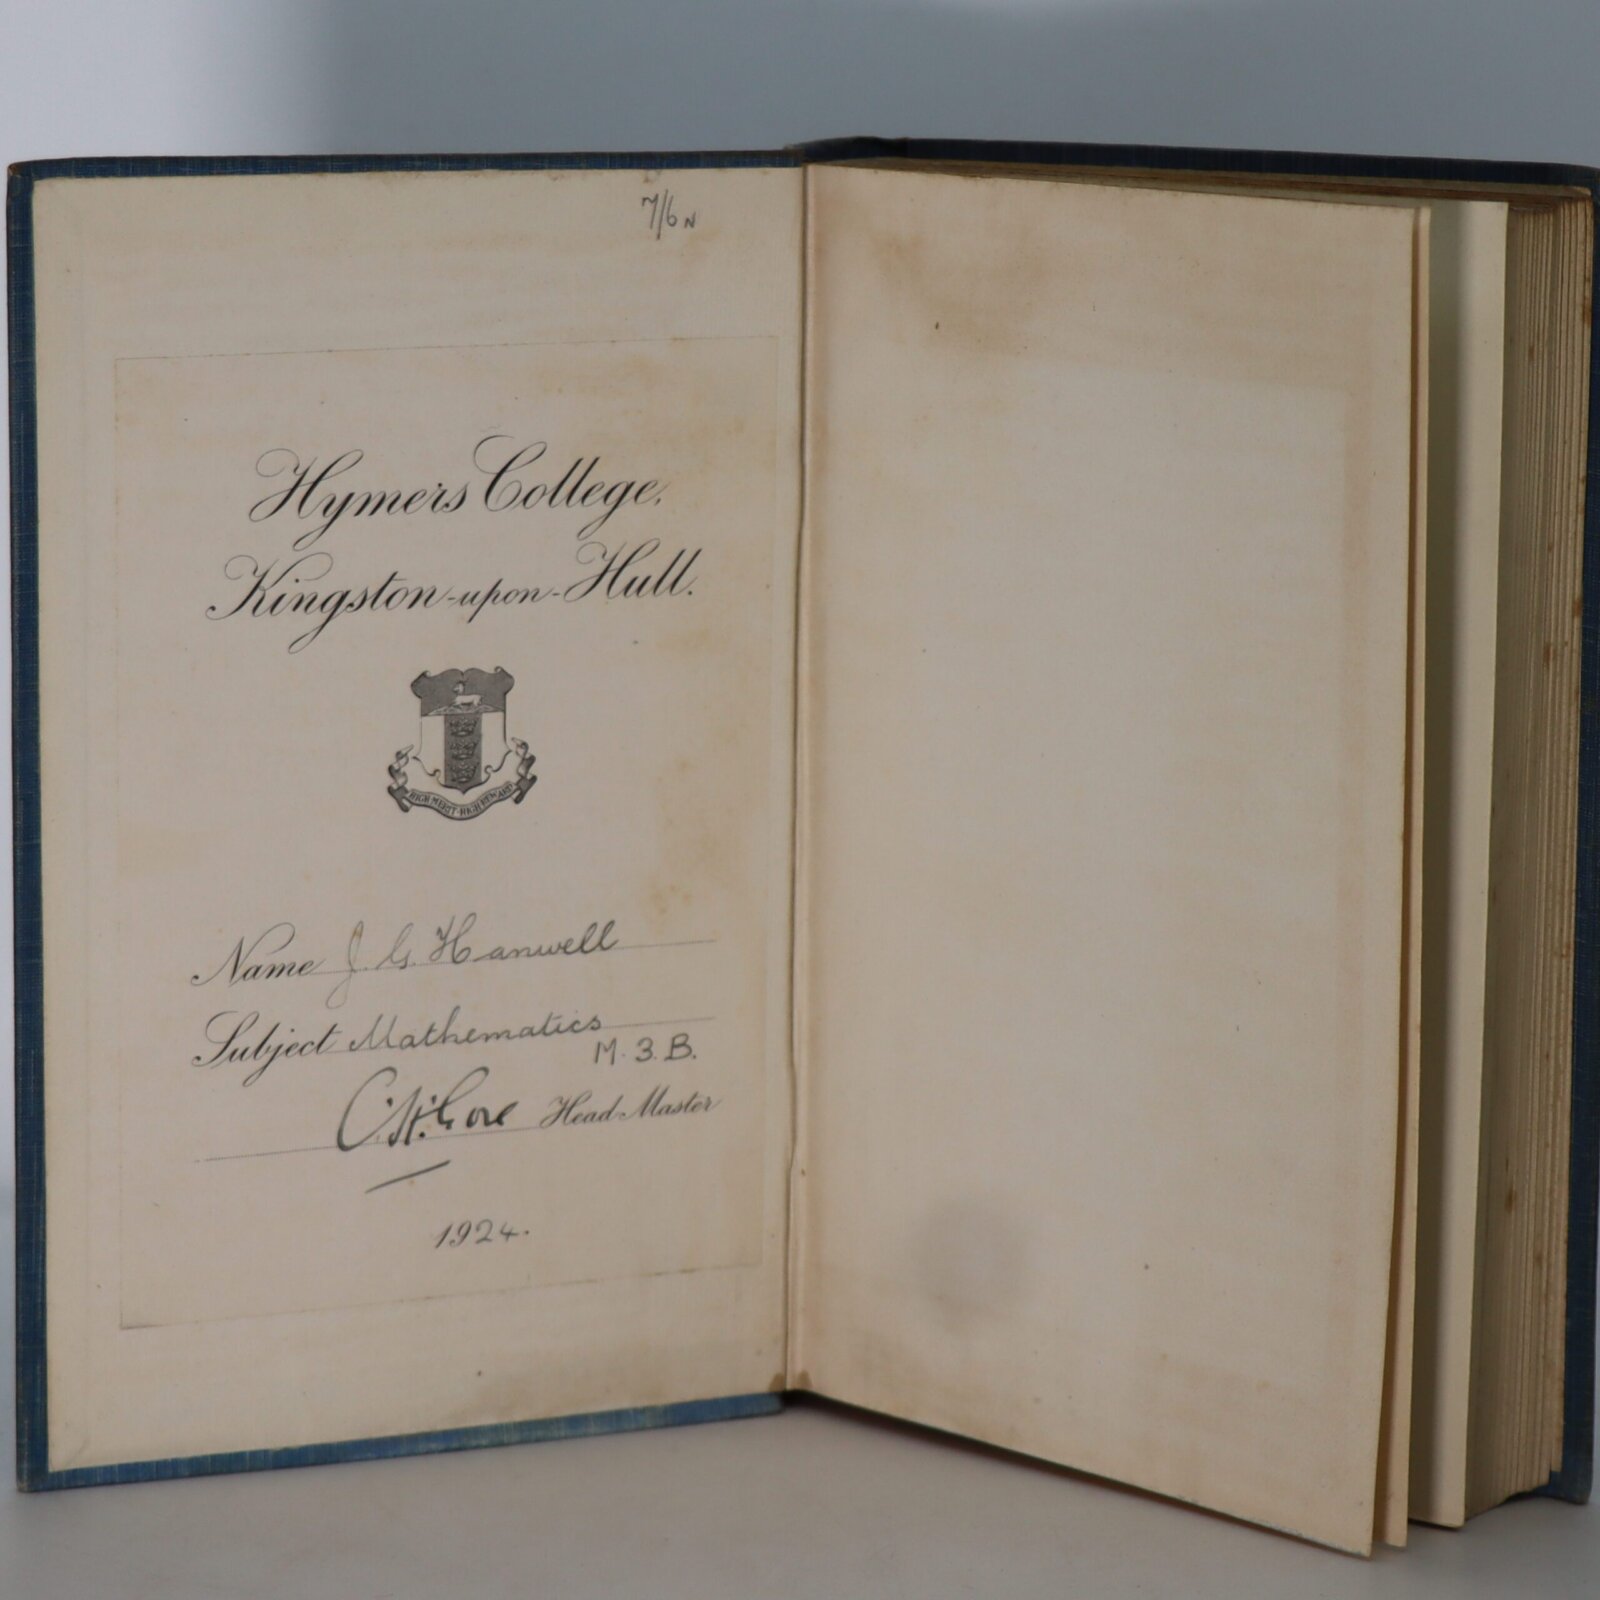 7/6 N
Hymers College,
Kingston-upon-Hull.
HIGH MERIT · HIGH REWARD
Name J. G. Hanwell
Subject Mathematics
M. 3. B.
C. H. Gore Head Master
1924.